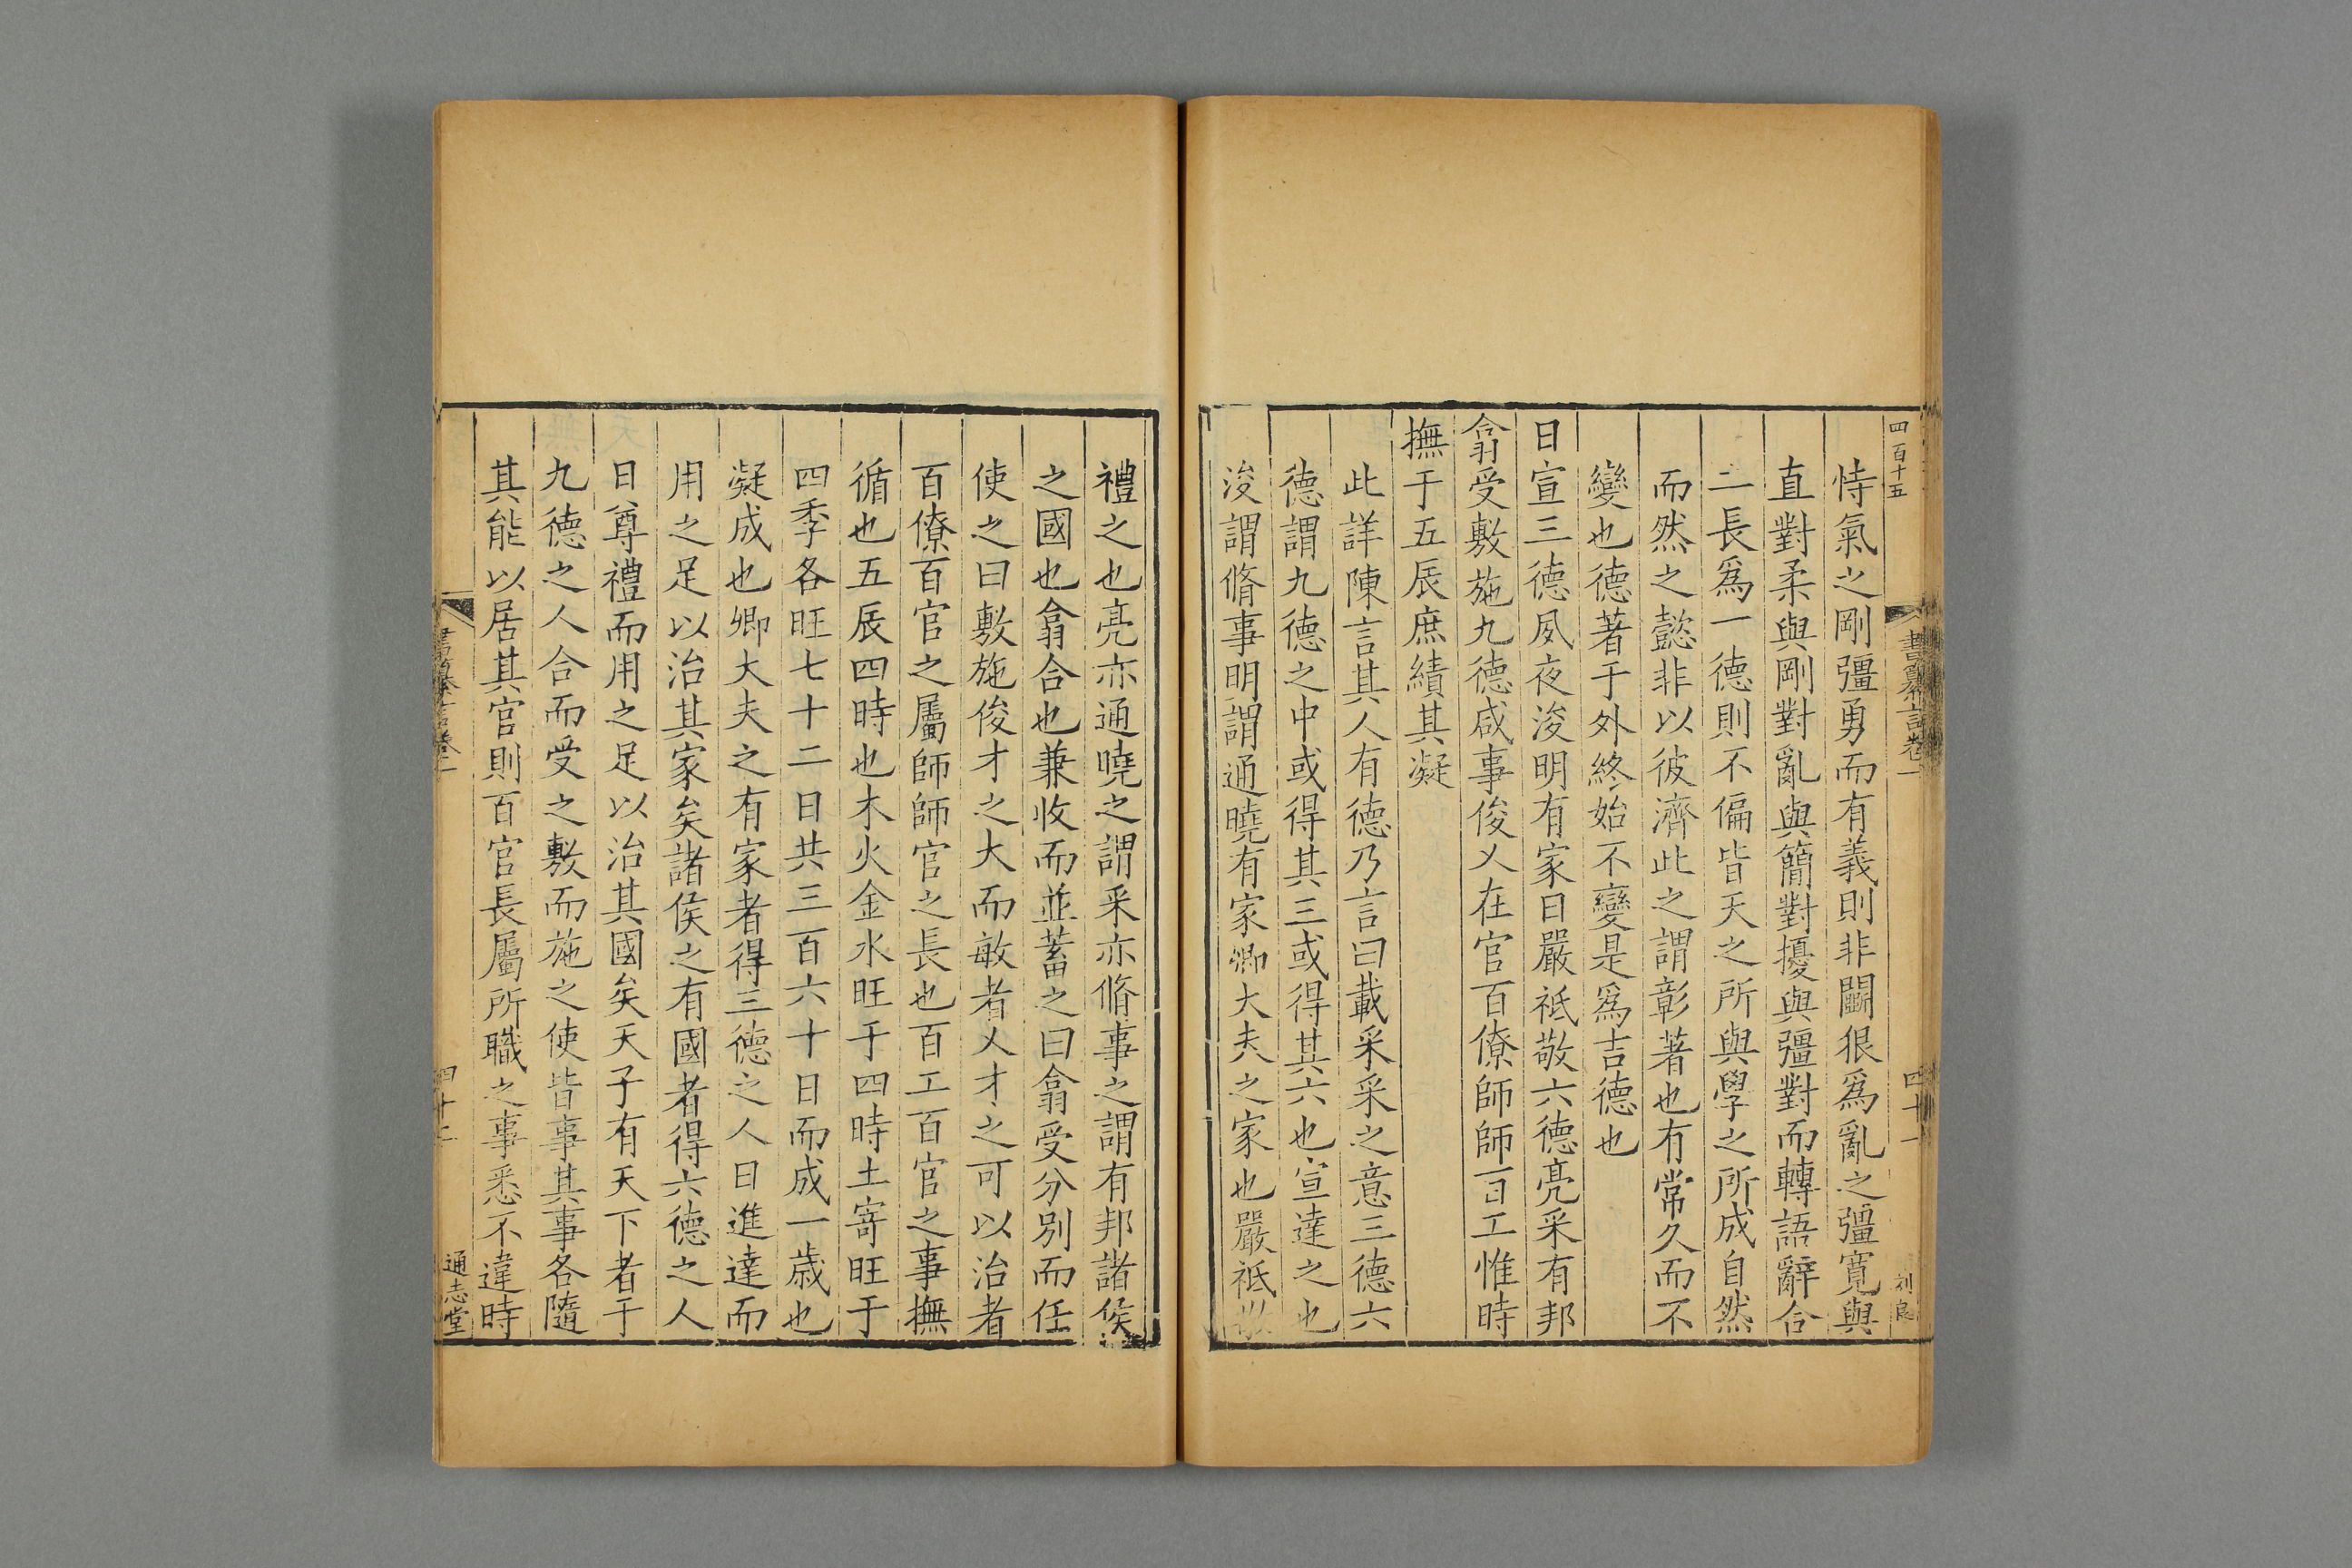 四百十五
書纂言卷一
四十一
刘良
恃氣之剛彊勇而有義則非鬭狠爲亂之彊寬與
直對柔與剛對亂與簡對擾與彊對而轉語辭合
二長爲一德則不偏皆天之所與學之所成自然
而然之懿非以彼濟此之謂彰著也有常久而不
變也德著于外終始不變是爲吉德也
日宣三德夙夜浚明有家日嚴祗敬六德亮采有邦
翕受敷施九德咸事俊乂在官百僚師師百工惟時
撫于五辰庶績其凝
此詳陳言其人有德乃言曰載采采之意三德六
德謂九德之中或得其三或得其六也宣達之也
浚謂脩事明謂通曉有家卿大夫之家也嚴祗
禮之也亮亦通曉之謂采亦脩事之謂有邦諸侯
之國也翕合也兼收而並蓄之曰翕受分別而任
使之曰敷施俊才之大而敏者乂才之可以治者
百僚百官之屬師師官之長也百工百官之事撫
循也五辰四時也木火金水旺于四時土寄旺于
四季各旺七十二日共三百六十日而成一歲也
凝成也卿大夫之有家者得三德之人日進達而
用之足以治其家矣諸侯之有國者得六德之人
日尊禮而用之足以治其國矣天子有天下者于
九德之人合而受之敷而施之使皆事其事各隨
其能以居其官則百官長屬所職之事悉不違時
書纂言卷一
四十二
通志堂